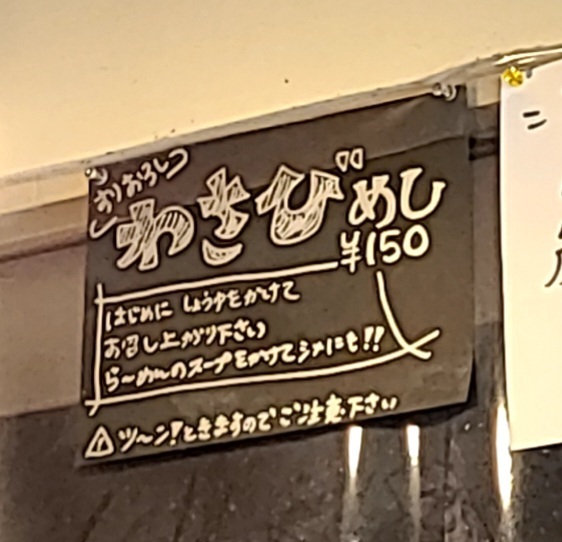 すりおろし
わさびめし
¥150
はじめに しょうゆをかけて
お召し上がり下さい
らーめんのスープをかけてシメにも!!
⚠ ツ〜ン!ときますのでご注意下さい
ニ